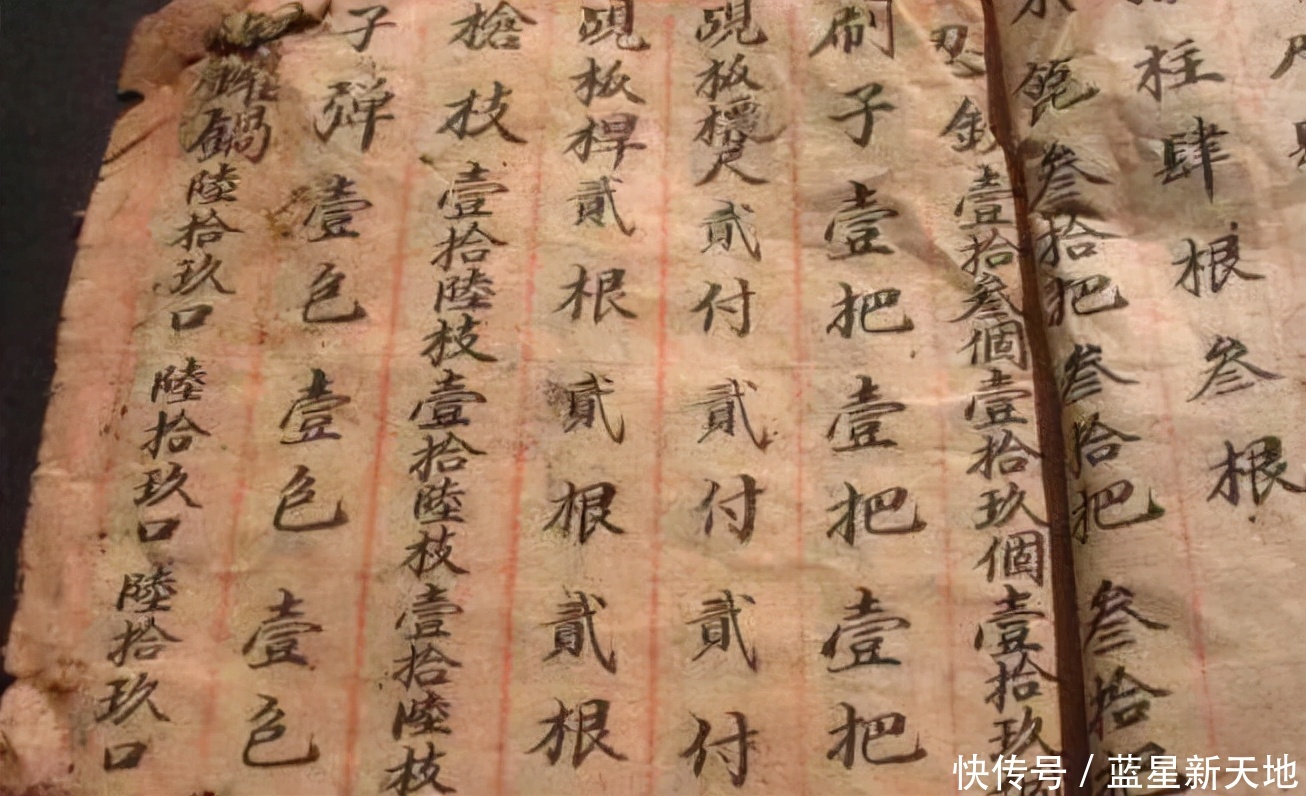 柱肆根叁根
叁拾把叁拾把叁拾
壹拾叁個壹拾玖個壹拾玖
刷子壹把壹把壹把
板尺貳付貳付貳付
板桿貳根貳根貳根
槍枝壹拾陸枝壹拾陸枝壹拾陸枝
子弹壹色壹色壹色
鍋陸拾玖口陸拾玖口陸拾玖口
快传号 / 蓝星新天地